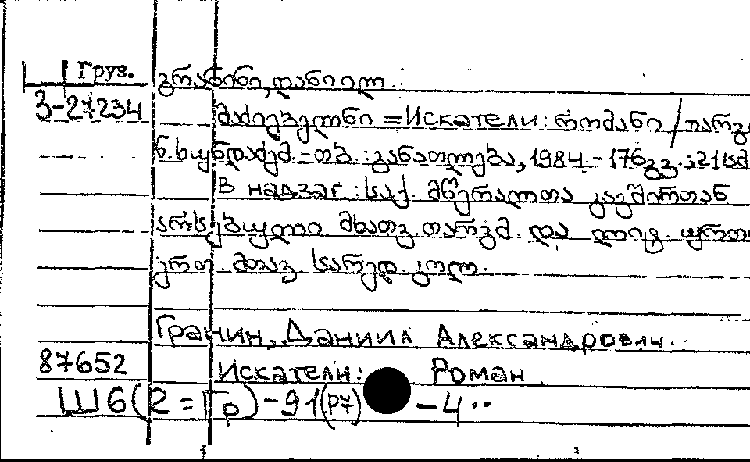 Груз.
გრანინი, დანიილ.
3-27234
მაძიებელნი = Искатели: რომანი / თარგმ.
ნ. ხუნდაძემ. - თბ.: განათლება, 1984. - 176 გვ.; 21 სმ
В надзаг: საქ. მწერალთა კავშირთან
არსებული მხატვ. თარგმ. და ლიტ. ურთი
ერთ. მთავ. სარედ. კოლ.
Гранин, Даниил Александрович.
87652
Искатели: Роман
Ш6(2=Гр)-91(Р7) -4